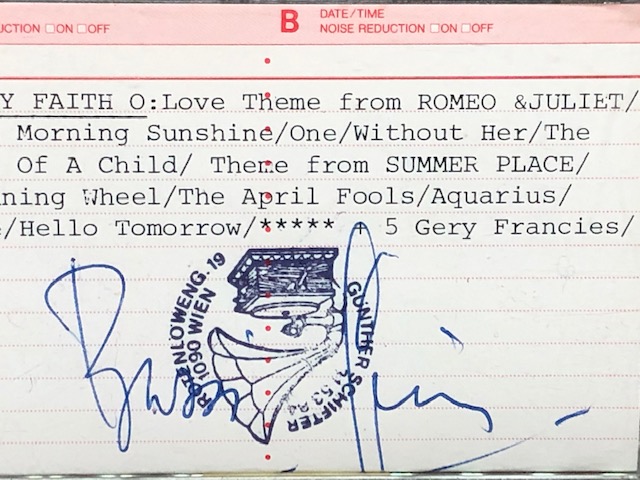 UCTION □ON □OFF
B
DATE/TIME
NOISE REDUCTION □ON □OFF
Y FAITH O:Love Theme from ROMEO &JULIET/
Morning Sunshine/One/Without Her/The
Of A Child/ Theme from SUMMER PLACE/
ning Wheel/The April Fools/Aquarius/
e/Hello Tomorrow/***** + 5 Gery Francies/
1090 WIEN
GÜNTHER SCHIFTER